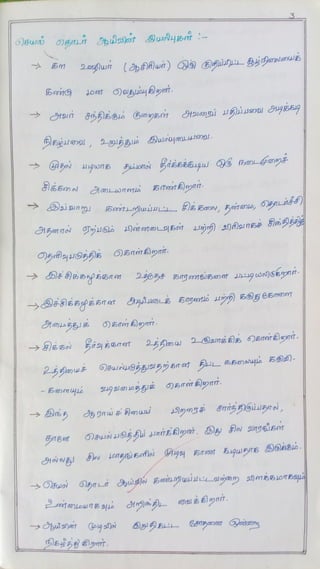 3
செயல் தொடர் ஆய்வின் இயல்புகள் :-
→ கள ஊழியர் (ஆசிரியர்) ஒரு குறிப்பிட்ட இந்நிலையைக்
கண்டு மன வெதும்புகிறார்.
→ அவர் சந்திக்கும் குறைகள் அவரைப் பாதிப்பவை அடிக்கடி
நிகழ்பவை, உறுத்தும் இயல்புடையவை.
→ முதல் படியாக தம்மால் தீர்க்கக்கூடிய ஒரு நடைமுறைச்
சிக்கலை அடையாளம் காண்கிறார்.
→ இவ்வாறு கண்டறியப்பட்ட சிக்கலை, தன்மை, தொடர்ச்சி
அதனால் ஏற்படும் பின்னடைவுகள் பற்றி விரிவாகச் சிந்தித்து
தெளிவுபடுத்திக் கொள்கிறார்.
→ இச்சிக்கலுக்கான உத்தேச காரணங்களை பட்டியலிடுகிறார்.
→ இச்சிக்கலுக்கான அடிப்படைக் காரணம் பற்றி கருதுகோளை
அமைத்துக் கொள்கிறார்.
→ சிக்கல் தீர்வுக்கான உத்தியை உருவாக்கிக் கொள்கிறார்.
உத்தியைச் செயல்படுத்துவதற்கான திட்ட வகையும் கருவி-
-களையும் வடிவமைத்துக் கொள்கிறார்.
→ இந்த ஆராய்ச்சியைப் பிறரைச் சார்ந்திருப்பதால்,
தானே செயல்படுத்திப் பார்க்கிறார். இது சில வாரங்கள்
அல்லது சில மாதங்களில் முடிவு காண கூடியதாக இருக்கும்.
→ செயல் தொடர் ஆய்வில் கண்டறியப்பட்டவற்றை விளக்கமாகவும்
உண்மையாகவும் அறிக்கையிட வைக்கிறார்.
→ ஆய்வின் முடிவில் இறுதிகட்ட சோதனை ஒன்றை
நிகழ்த்துகிறார்.